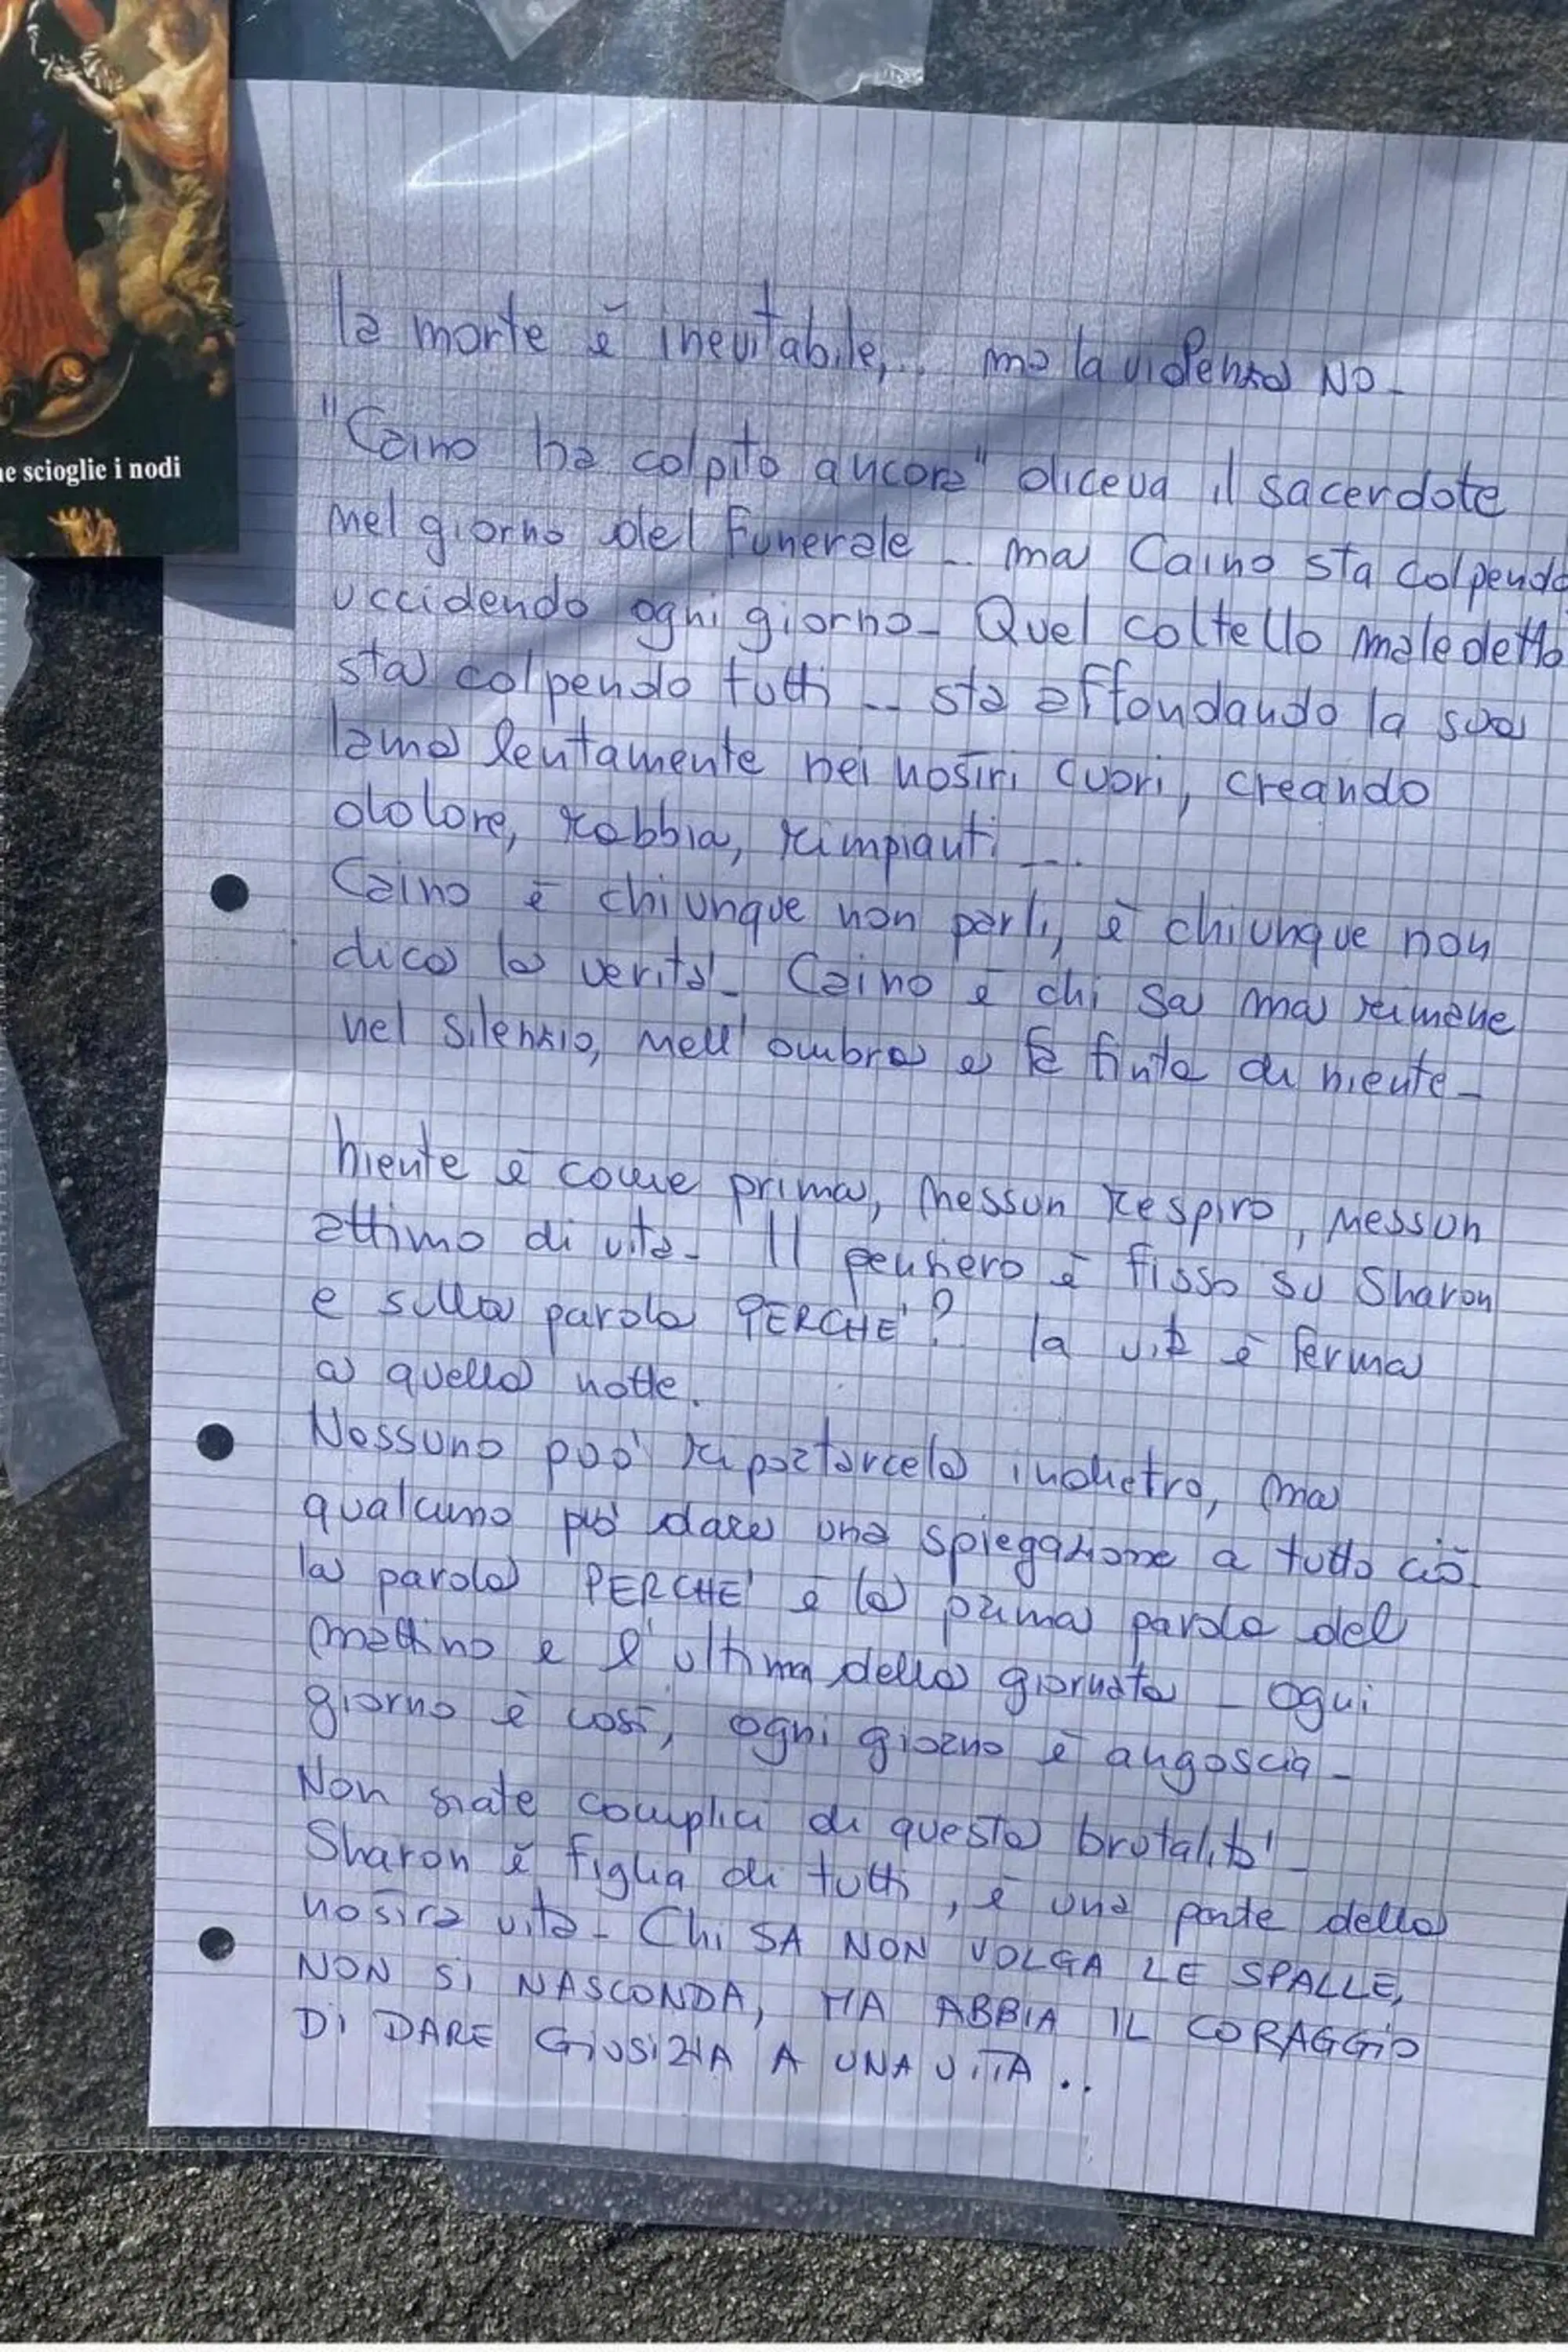 ne scioglie i nodi
la morte è inevitabile,.. ma la violenza NO-
"Caino ha colpito ancora" diceva il sacerdote
nel giorno del Funerale -- ma Caino sta colpendo
uccidendo ogni giorno- Quel coltello maledetto
sta colpendo tutti -- sta affondando la sua
lama lentamente nei nostri cuori, creando
dolore, rabbia, rimpianti --..
Caino è chiunque non parli, è chiunque non
dica la verità- Caino è chi sa ma rimane
nel silenzio, nell'ombra e fa finta di niente-
niente è come prima, nessun respiro, nessun
attimo di vita- Il pensiero è fisso su Sharon
e sulla parola PERCHE'? la vita è ferma
a quella notte.
Nessuno può riportarcela indietro, ma
qualcuno può dare una spiegazione a tutto ciò-
la parola PERCHE' è la prima parola del
mattino e l'ultima della giornata - Ogni
giorno è così, ogni giorno è angoscia-
Non siate complici di questa brutalità-
Sharon è figlia di tutti, è una parte della
nostra vita- Chi SA NON VOLGA LE SPALLE,
NON Si NASCONDA, MA ABBIA IL CORAGGiO
Di DARE GiUSTIZIA A UNA ViTA ..